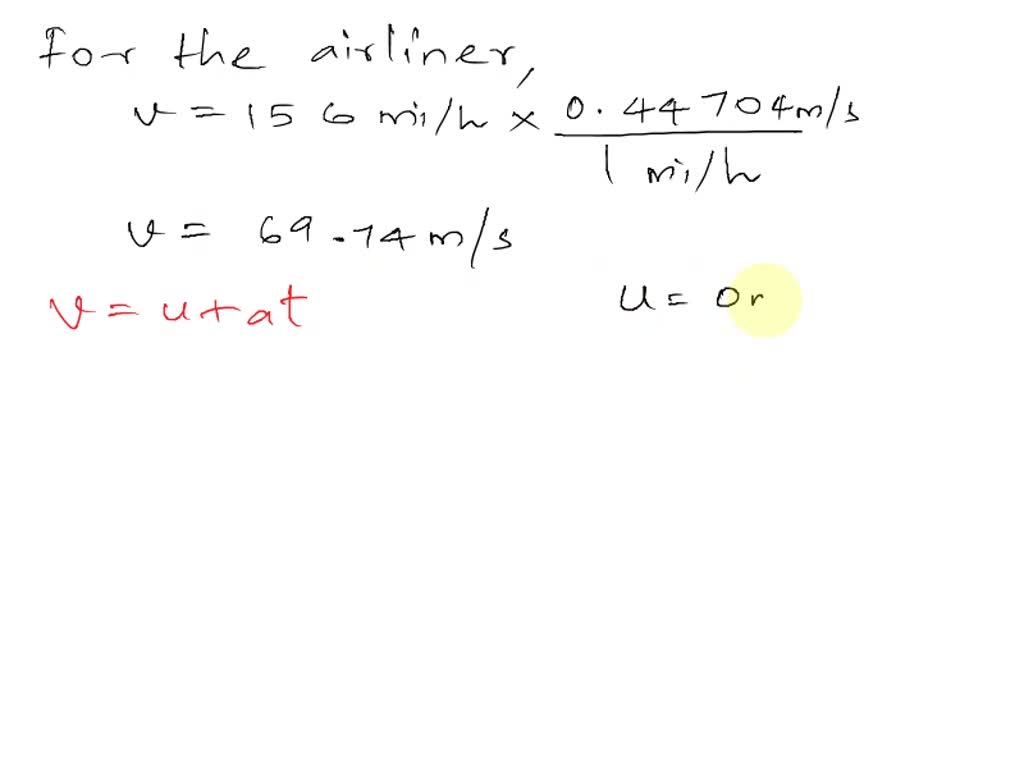 For the airliner,
v = 156 mi/h × 0.44704 m/s
1 mi/h
v = 69.74 m/s
v = u + at
u = 0 r